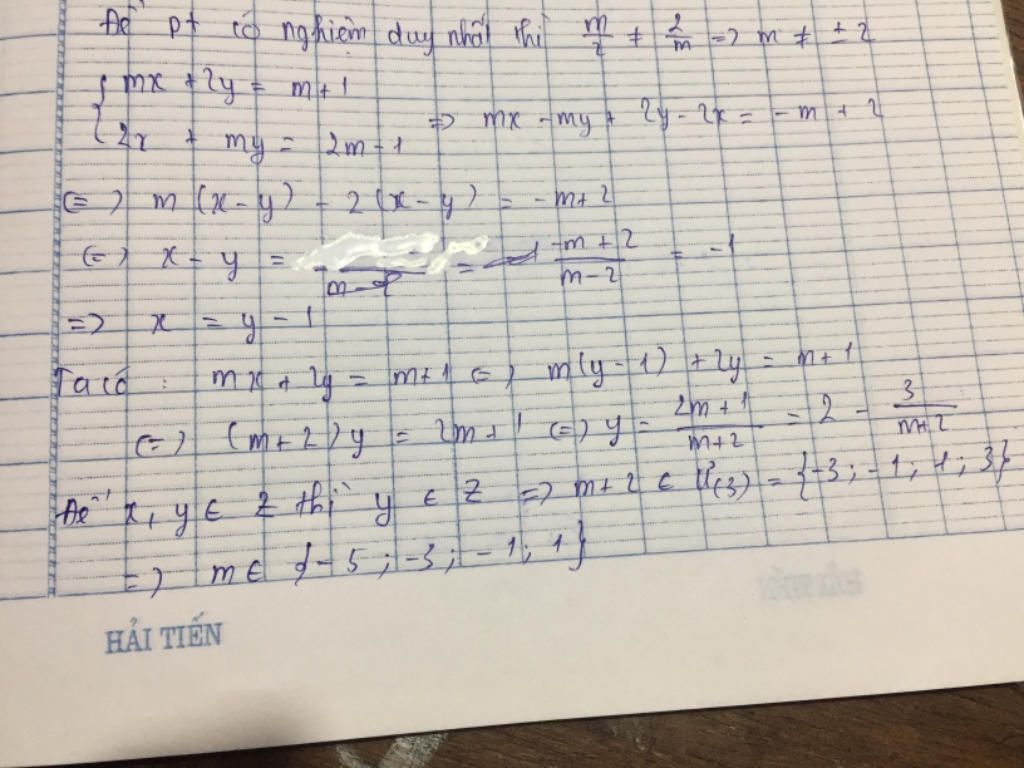 Để pt có nghiệm duy nhất thì m/2 ≠ 2/m => m ≠ ± 2
{ mx + 2y = m+1
{ 2x + my = 2m-1 => mx - my + 2y - 2x = -m + 2
(=) m (x-y) - 2 (x-y) = -m+2
(=) x - y = = -m + 2 / m-2 = -1
=> x = y - 1
Ta có : mx + 2y = m+1 (=) m(y-1) + 2y = m+1
(=) (m+2)y = 2m+1 (=) y = 2m+1 / m+2 = 2 - 3 / m+2
Để x, y ∈ Z thì y ∈ Z => m+2 ∈ Ư(3) = {-3 ; -1 ; 1 ; 3}
=> m ∈ {-5 ; -3 ; -1 ; 1}
HẢI TIẾN